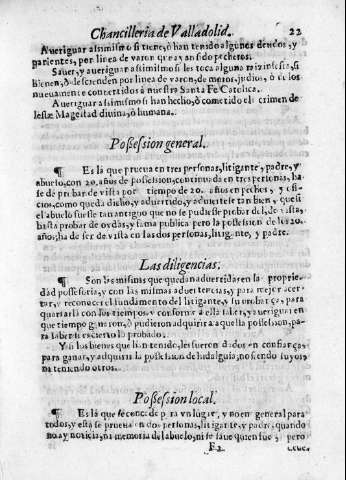 Chancilleria de Valladolid. 22
Averiguar assimismo si tiene, ò han tenido algunos deudos, y
parientes, por linea de varon que ayan sido pecheros.
Saver, y averiguar assimismo si les toca alguna raiz infesta, si
vienen, ò descienden por linea de varon, de moros, judios, ò de los
nuevamente convertidos à nuestra Santa Fè Catolica.
Averiguar assimismo si han hecho, ò cometido el crimen de
lesæ Magestad divina, ò humana.
Possession general.
¶ Es la que prueva en tres personas, litigante, padre, y
abuelo, con 20. años de possession, continuada en tres personas, ha
se de probar de vista por tiempo de 20. años en pechos, y ofi-
cios, como queda dicho, y advertido, y advierte se tan bien, que si
el abuelo fuesse tan antiguo que no se pudiesse probar del, de vista,
basta probar de oydas, y fama publica pero la possession de los 20.
años, ha de ser de vista en las dos personas, litigante, y padre.
Las diligencias.
¶ Son las mismas que quedan advertidas en la proprie-
dad possessoria, y con las mismas advertencias, y para mejor acer-
tar, y reconocer el fundamento del litigante, y su probança, para
quartarla con los tiempos, y conforme à ella saber, y averiguar en
que tiempo ganaron, ò pudieron adquirir a aquella possession, pa-
ra saber si es cierto lo probado.
Y si los bienes que han tenido, les fueron dados en confiança,
para ganar, y adquirir la possession de hidalguia, no siendo suyos
na teniendo otros.
Possession local.
¶ Es la que se concede para un lugar, y no en general para
todos, y esta se prueva en dos personas, litigante, y padre, quando
no ay noticia, ni memoria del abuelo, ni se save quien fue, pero
F 2